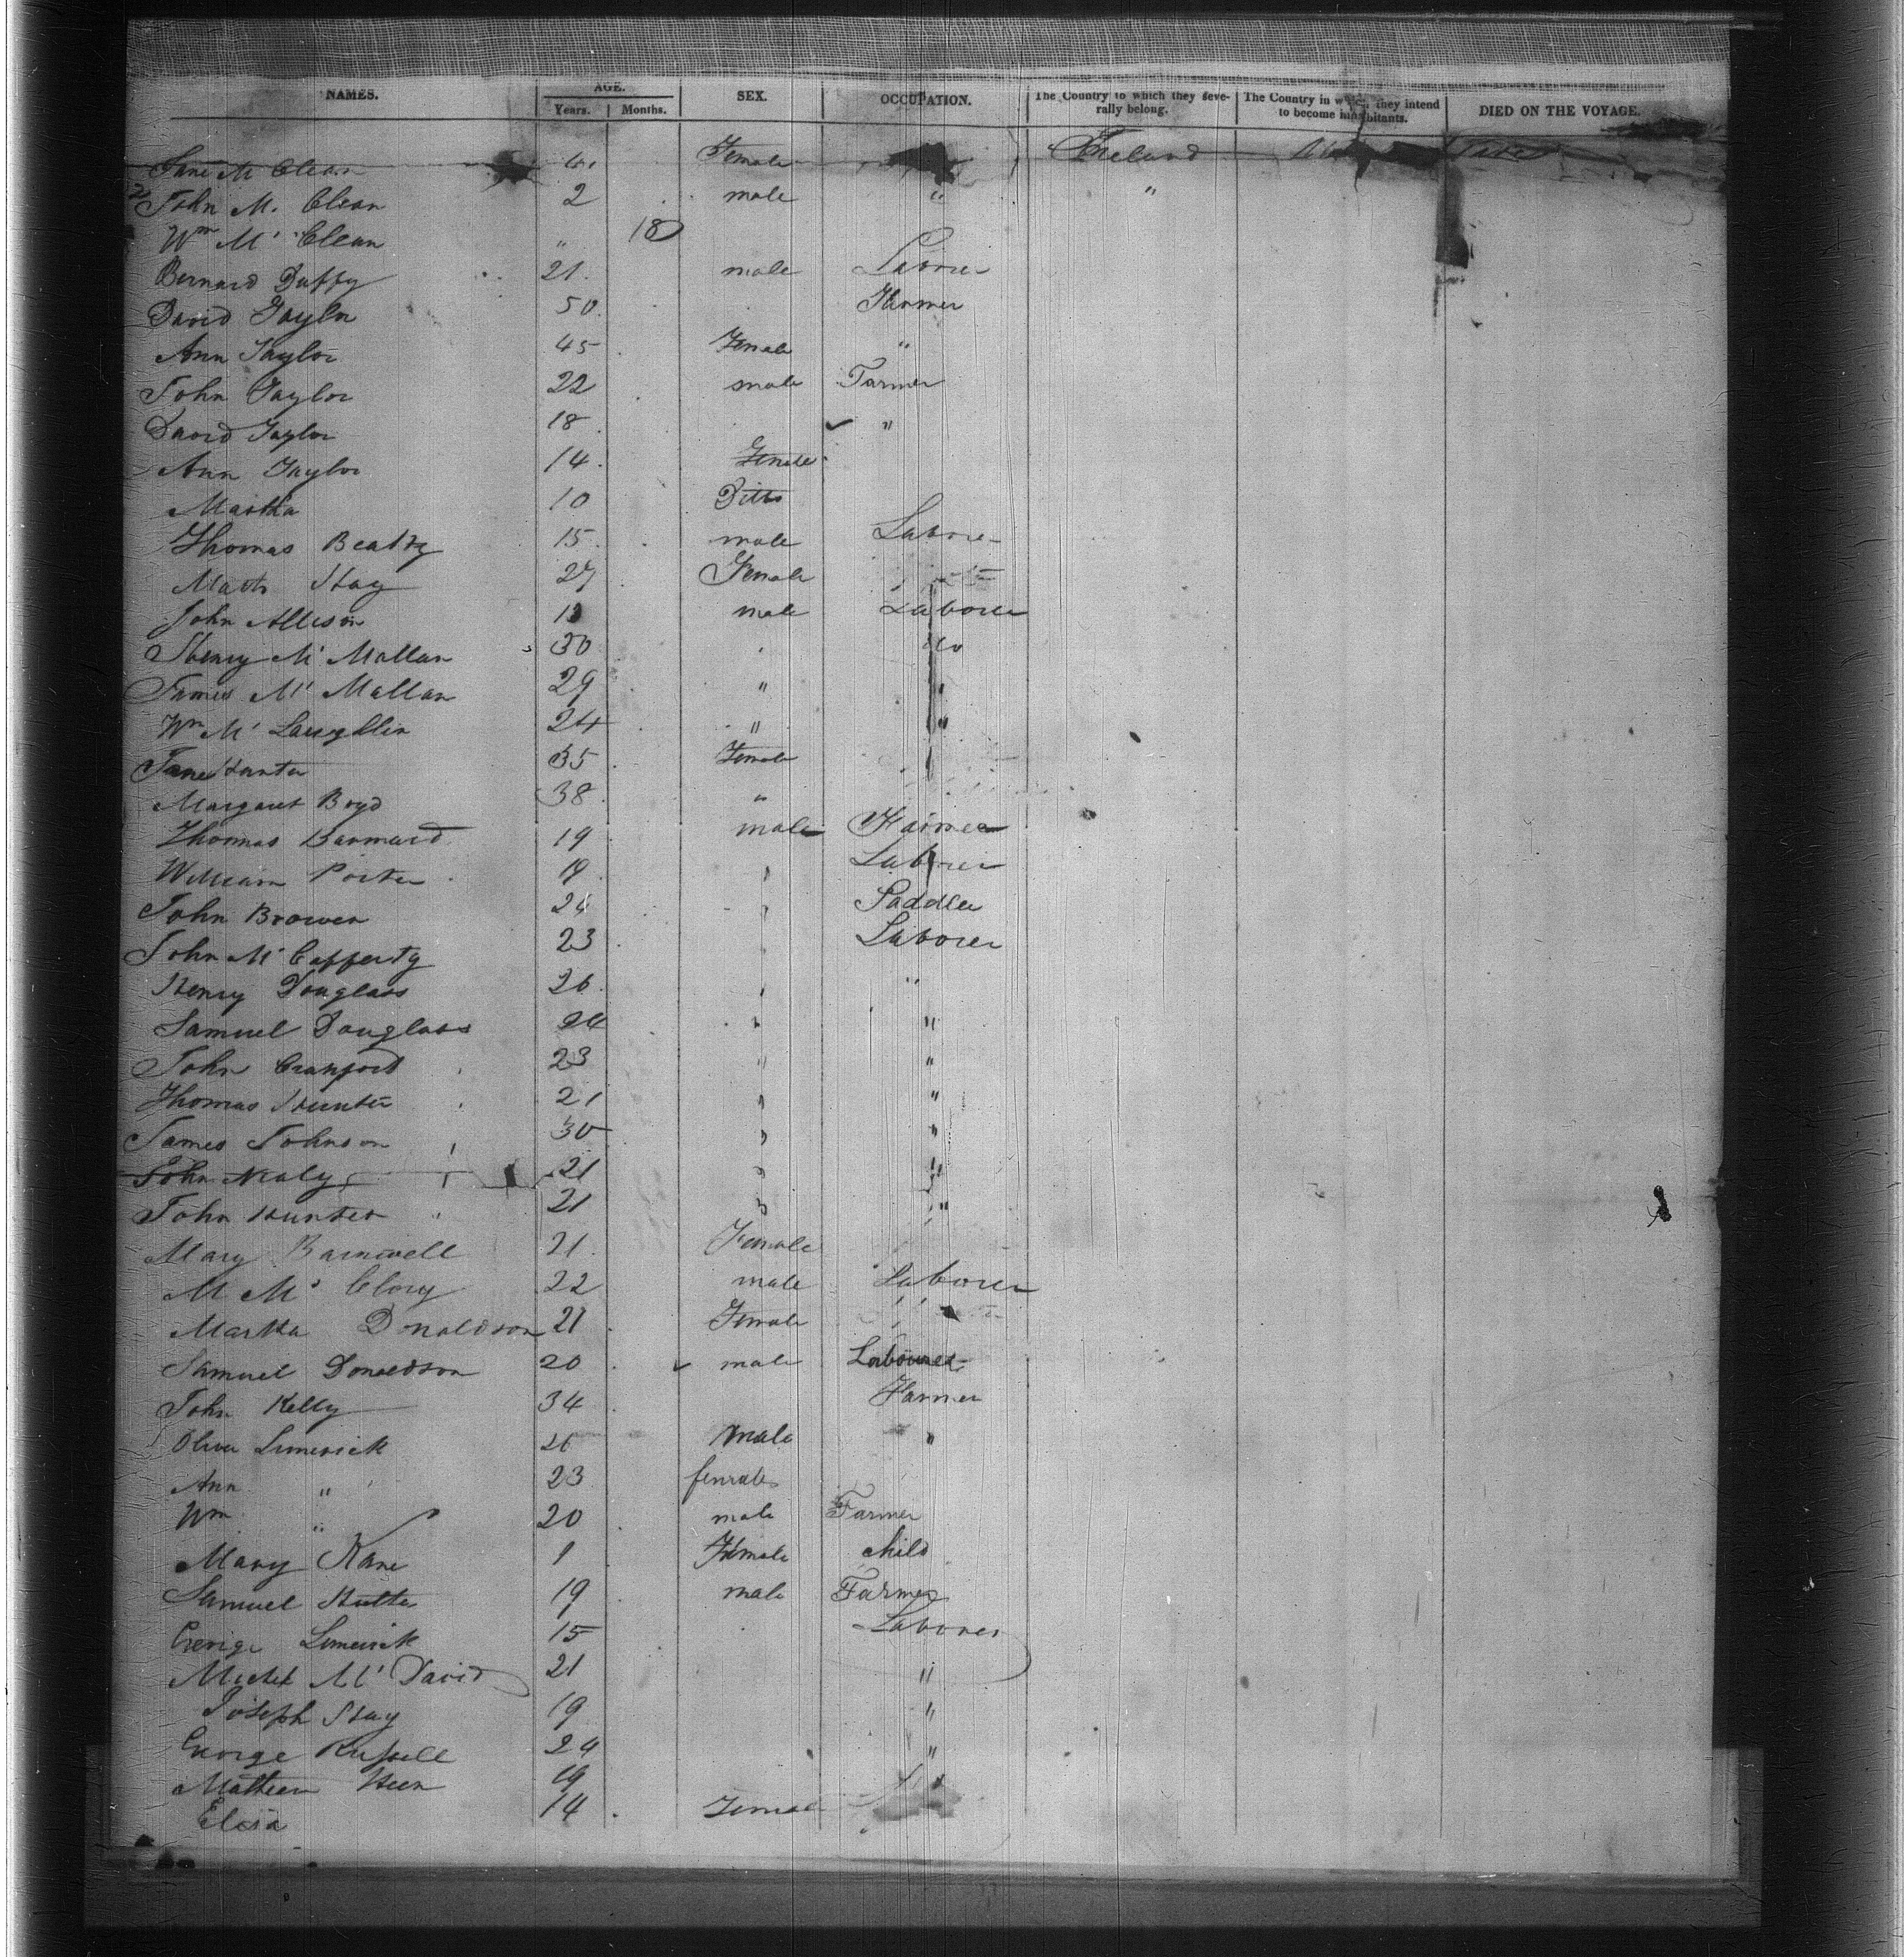 NAMES. AGE. Years. Months. SEX. OCCUPATION. The Country to which they severally belong. The Country in which they intend to become inhabitants. DIED ON THE VOYAGE.
Jane Mc Clean Female Ireland
John M. Clean 2 male " "
Wm Mc Clean " 18
Bernard Duffy 21 male Laborer
David Taylor 50 Farmer
Ann Taylor 45 Female "
John Taylor 22 male Farmer
David Taylor 18 "
Ann Taylor 14 Female
Martha 10 Ditto
Thomas Beatty 15 male Laborer
Hay 27 Female
John Allison male Laborer
Henry Mc Mallan 30 Do
James Mc Mallan 29 " "
Wm Mc Laughlin 24 " "
Jane Hunter 35 Female
Margaret Boyd 38 "
Thomas Barnward 19 male Farmer
William Porter 19 Laborer
John Brown 24 Saddler
John Mc Cafferty 23 Laborer
Henry Douglass 26 "
Samuel Douglass 24 " "
John Crawford 23 " "
Thomas Hunter 21 " "
James Johnson 30 " "
John Nealy 21 " "
John Hunter 21 " "
Mary Barnwell 21 Female
M Mc Clory 22 male Laborer
Martha Donaldson 21 Female
Samuel Donaldson 20 male Labourer
John Kelly 34 Farmer
Oliver Limerick male "
Ann " 23 female
Wm " 20 male Farmer
Mary Kane 1 Female child
Samuel 19 male Farmer
George Limerick 15 Laborer
Mc David 21 "
Joseph Hay 19 "
George Russell 24 "
Mathew 19 "
Eliza 14 Female